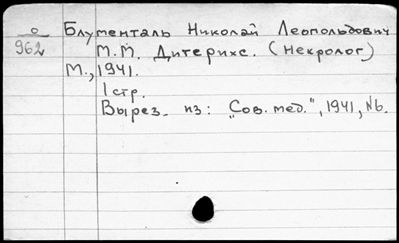 о
962
Блументаль Николай Леопольдович
М.М. Дитерихс. (Некролог)
М., 1941.
1 стр.
Вырез. из: „Сов. мед.", 1941, №6.